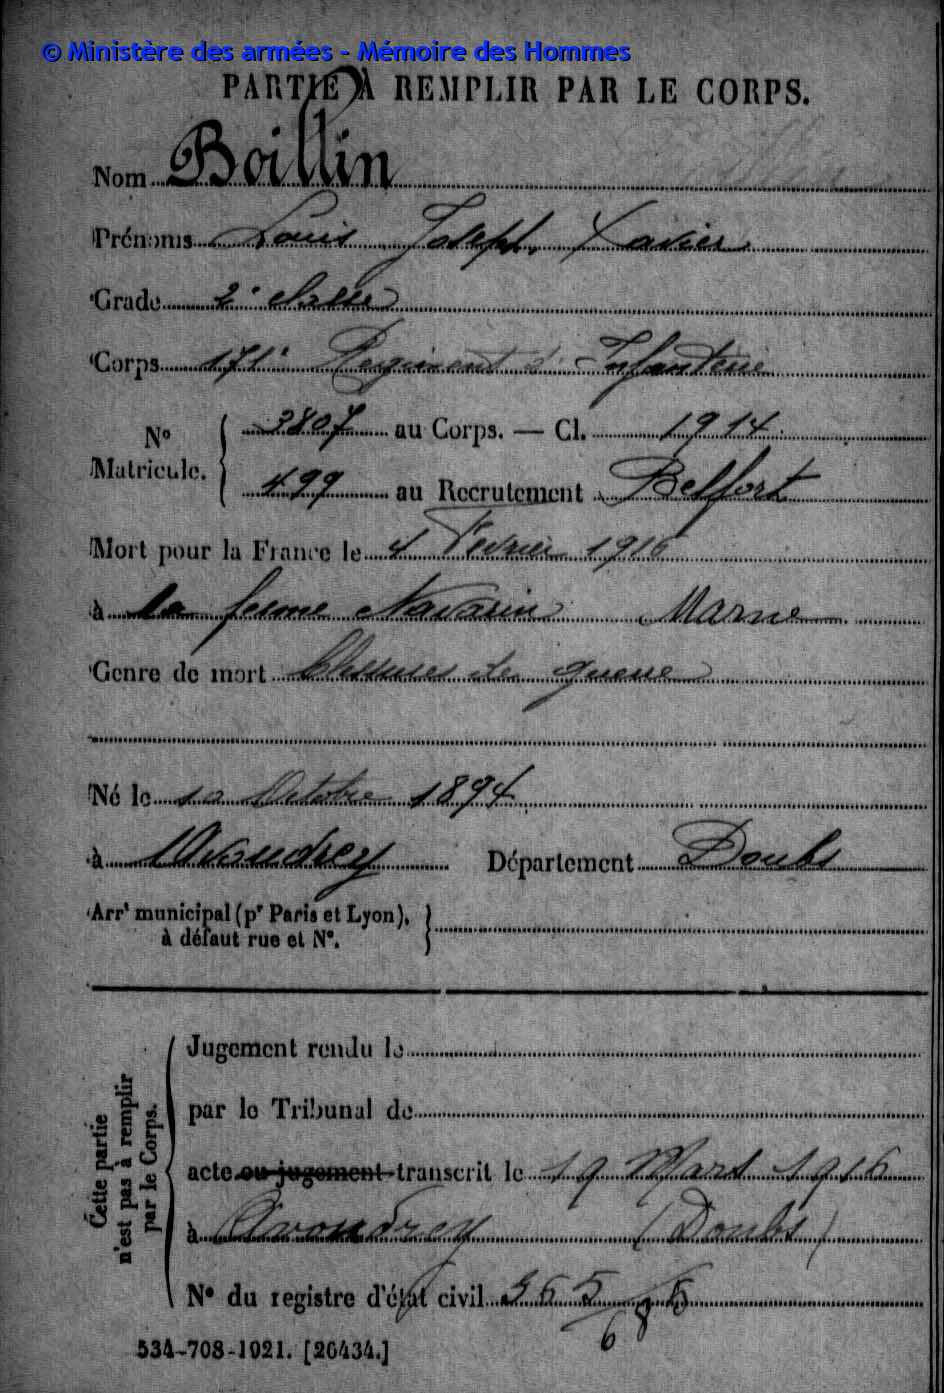 © Ministère des armées - Mémoire des Hommes
PARTIE À REMPLIR PAR LE CORPS.
Nom Boillin
Prénoms Louis Joseph Xavier
Grade 2e classe
Corps 171e Régiment d'Infanterie
No Matricule. { 3807 au Corps. — Cl. 1914
499 au Recrutement Belfort
Mort pour la France le 4 Février 1916
à la ferme Navarin Marne
Genre de mort blessures de guerre
Né le 10 Octobre 1894
à Avoudrey Département Doubs
Arrt municipal (pr Paris et Lyon), à défaut rue et No. }
Cette partie n'est pas à remplir par le Corps.
Jugement rendu le
par le Tribunal de
acte ou jugement transcrit le 19 Mars 1916
à Avoudrey (Doubs)
No du registre d'état civil
534-708-1921. [26434.]